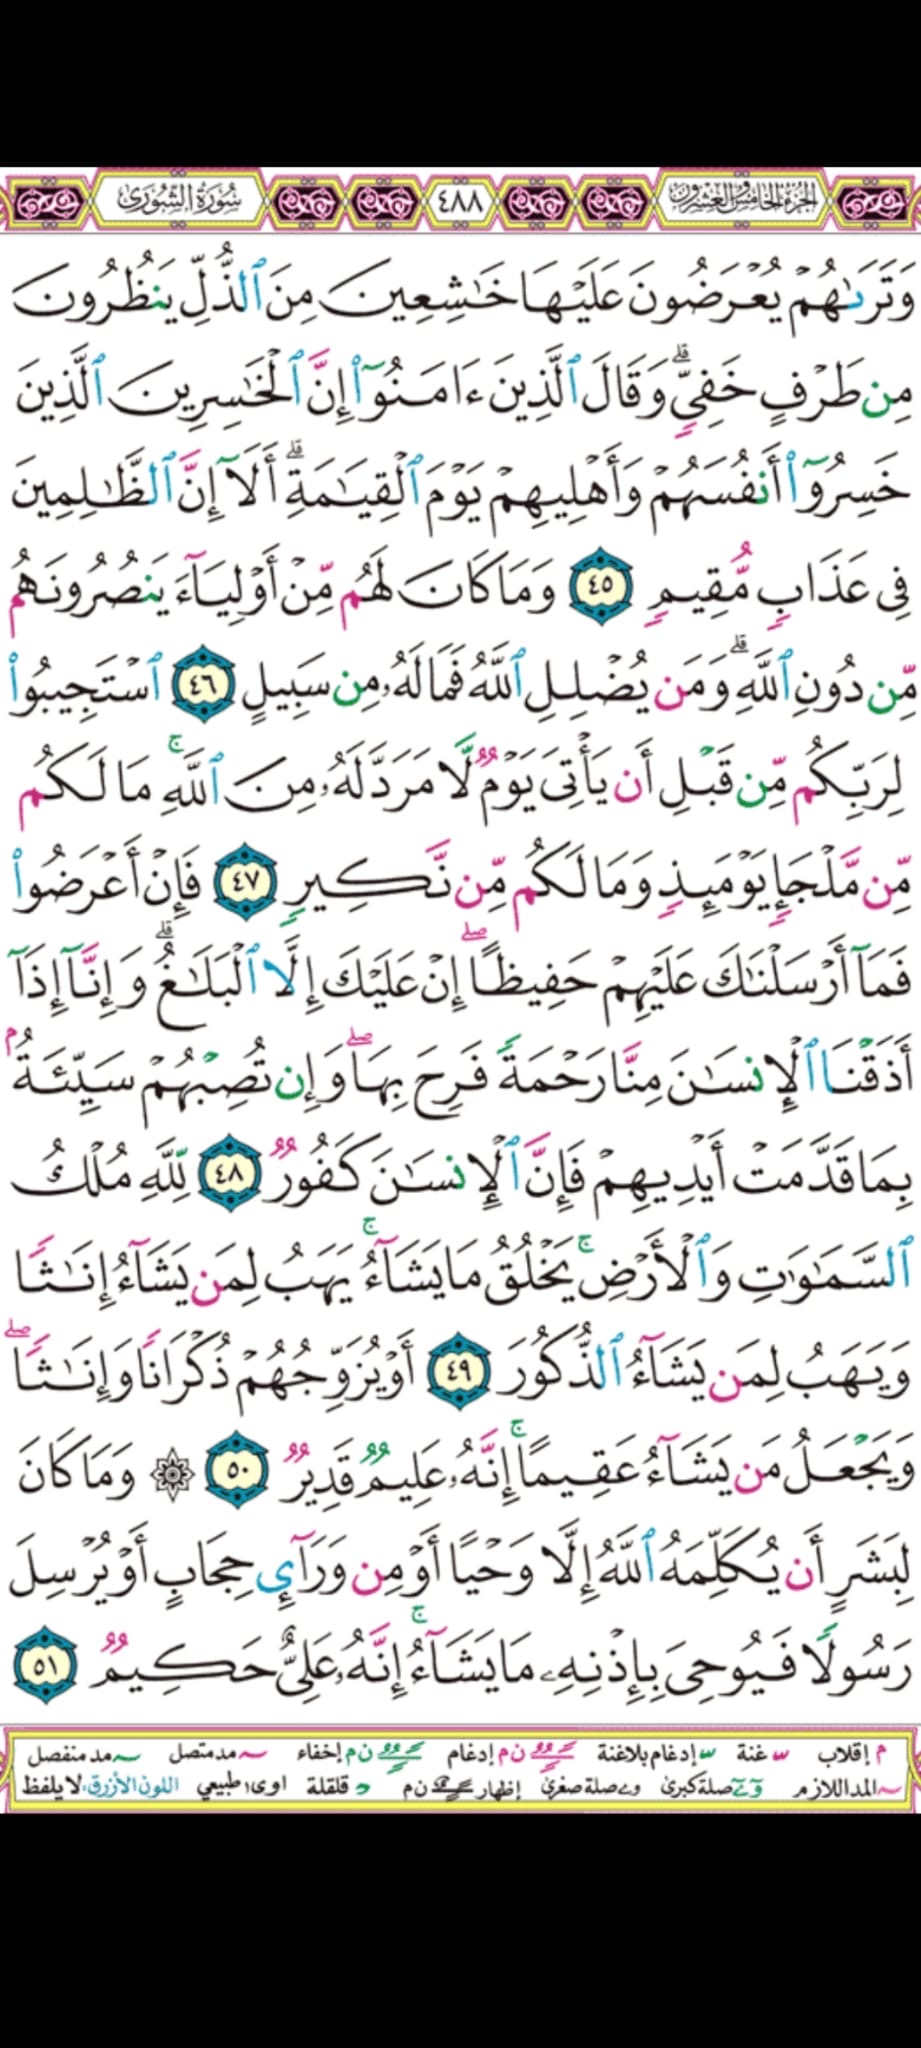 الجزء الخامس والعشرون ٤٨٨ سورة الشورى
وَتَرَىٰهُمْ يُعْرَضُونَ عَلَيْهَا خَٰشِعِينَ مِنَ ٱلذُّلِّ يَنظُرُونَ
مِن طَرْفٍ خَفِىٍّۗ وَقَالَ ٱلَّذِينَ ءَامَنُوٓا۟ إِنَّ ٱلْخَٰسِرِينَ ٱلَّذِينَ
خَسِرُوٓا۟ أَنفُسَهُمْ وَأَهْلِيهِمْ يَوْمَ ٱلْقِيَٰمَةِۗ أَلَآ إِنَّ ٱلظَّٰلِمِينَ
فِى عَذَابٍ مُّقِيمٍ ٤٥ وَمَا كَانَ لَهُم مِّنْ أَوْلِيَآءَ يَنصُرُونَهُم
مِّن دُونِ ٱللَّهِۗ وَمَن يُضْلِلِ ٱللَّهُ فَمَا لَهُۥ مِن سَبِيلٍ ٤٦ ٱسْتَجِيبُوا۟
لِرَبِّكُم مِّن قَبْلِ أَن يَأْتِىَ يَوْمٌ لَّا مَرَدَّ لَهُۥ مِنَ ٱللَّهِۚ مَا لَكُم
مِّن مَّلْجَإٍ يَوْمَئِذٍ وَمَا لَكُم مِّن نَّكِيرٍ ٤٧ فَإِنْ أَعْرَضُوا۟
فَمَآ أَرْسَلْنَٰكَ عَلَيْهِمْ حَفِيظًاۖ إِنْ عَلَيْكَ إِلَّا ٱلْبَلَٰغُۗ وَإِنَّآ إِذَآ
أَذَقْنَا ٱلْإِنسَٰنَ مِنَّا رَحْمَةً فَرِحَ بِهَاۖ وَإِن تُصِبْهُمْ سَيِّئَةُۢ
بِمَا قَدَّمَتْ أَيْدِيهِمْ فَإِنَّ ٱلْإِنسَٰنَ كَفُورٌ ٤٨ لِّلَّهِ مُلْكُ
ٱلسَّمَٰوَٰتِ وَٱلْأَرْضِۚ يَخْلُقُ مَا يَشَآءُۚ يَهَبُ لِمَن يَشَآءُ إِنَٰثًا
وَيَهَبُ لِمَن يَشَآءُ ٱلذُّكُورَ ٤٩ أَوْ يُزَوِّجُهُمْ ذُكْرَانًا وَإِنَٰثًاۖ
وَيَجْعَلُ مَن يَشَآءُ عَقِيمًاۚ إِنَّهُۥ عَلِيمٌ قَدِيرٌ ٥٠ ۞ وَمَا كَانَ
لِبَشَرٍ أَن يُكَلِّمَهُ ٱللَّهُ إِلَّا وَحْيًا أَوْ مِن وَرَآئِ حِجَابٍ أَوْ يُرْسِلَ
رَسُولًا فَيُوحِىَ بِإِذْنِهِۦ مَا يَشَآءُۚ إِنَّهُۥ عَلِىٌّ حَكِيمٌ ٥١
م إقلاب غنة إدغام بلاغنة ن م إدغام ن م إخفاء مد متصل مد منفصل
المد اللازم صلة كبرى صلة صغرى إظهار ن م قلقلة اوى طبيعي اللون الأزرق لا يلفظ